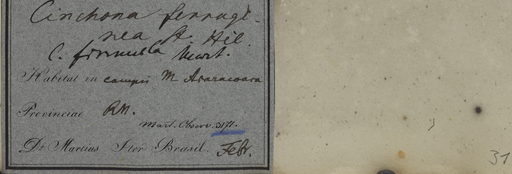 Cinchona ferrugi-
nea St. Hil.
C. firmula Mart.
Habitat in campis M. Araracoara
Provinciae RN.
Mart. Observ. 3171.
Dr Martius Iter Brasil. Febr.
31